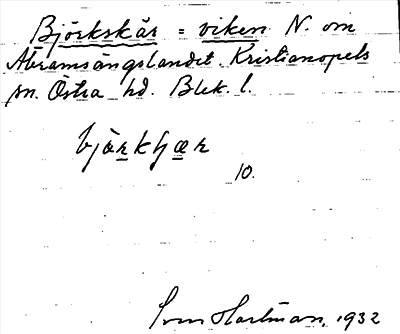 Björkskär = viken N. om
Abramsängslandet. Kristianopels
sn. Östra hd. Blek. l.
bjàrkhær
10.
Sven Hartman, 1932